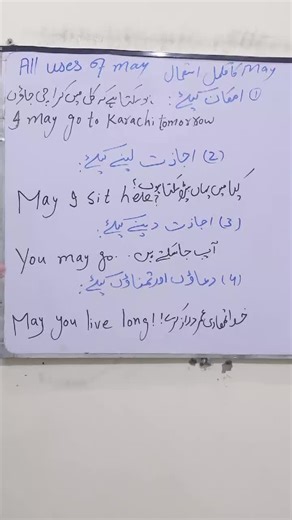 All uses of may May کا مکمل استعمال
① امکان کیلئے: ہو سکتا ہے کہ کل میں کراچی جاؤں
I may go to Karachi tomorrow
(2) اجازت لینے کیلئے:
May I sit here? کیا میں یہاں بیٹھ سکتا ہوں؟
(3) اجازت دینے کیلئے:
You may go. آپ جا سکتے ہیں.
(4) دعاؤں اور تمناؤں کیلئے:
May you live long!! خدا تمھاری عمر دراز کرے!!